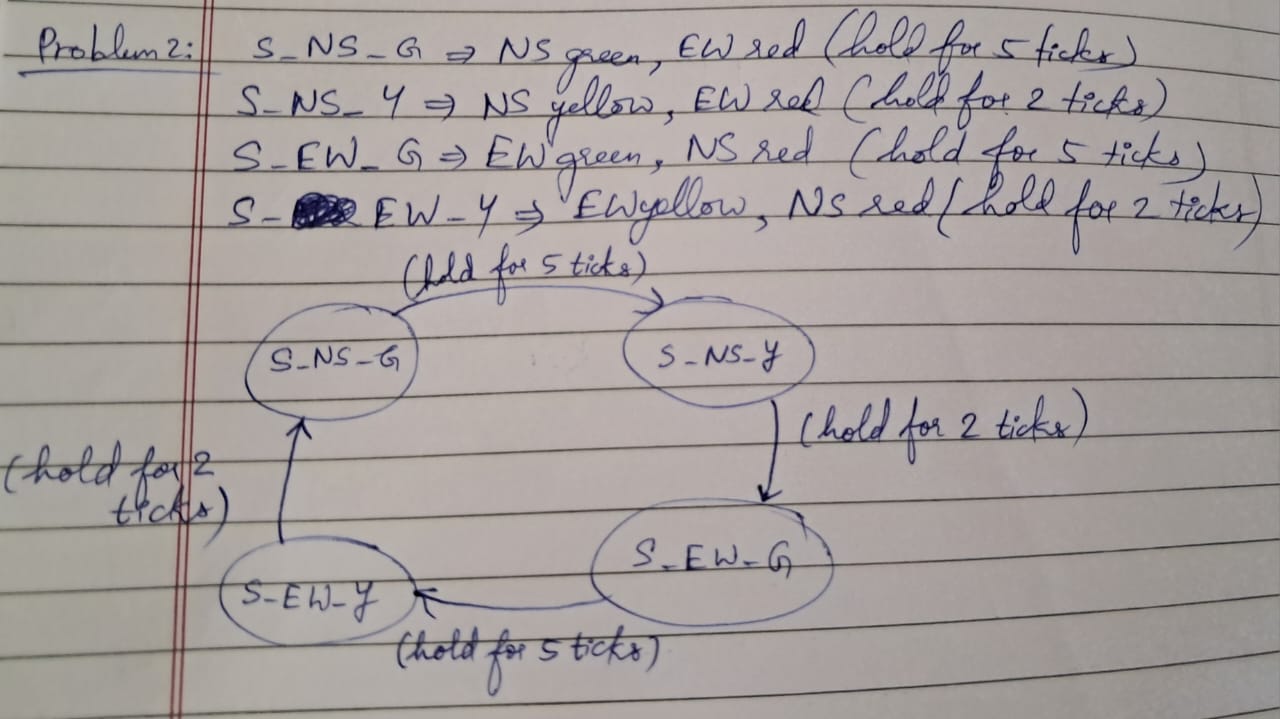 Problem 2: S_NS_G ⇒ NS green, EW red (hold for 5 ticks)
S_NS_Y ⇒ NS yellow, EW red (hold for 2 ticks)
S_EW_G ⇒ EW green, NS red (hold for 5 ticks)
S_EW_Y ⇒ EW yellow, NS red (hold for 2 ticks)
(hold for 5 ticks)
S_NS_G
S_NS_Y
(hold for 2 ticks)
(hold for 2
ticks)
S_EW_G
S_EW_Y
(hold for 5 ticks)